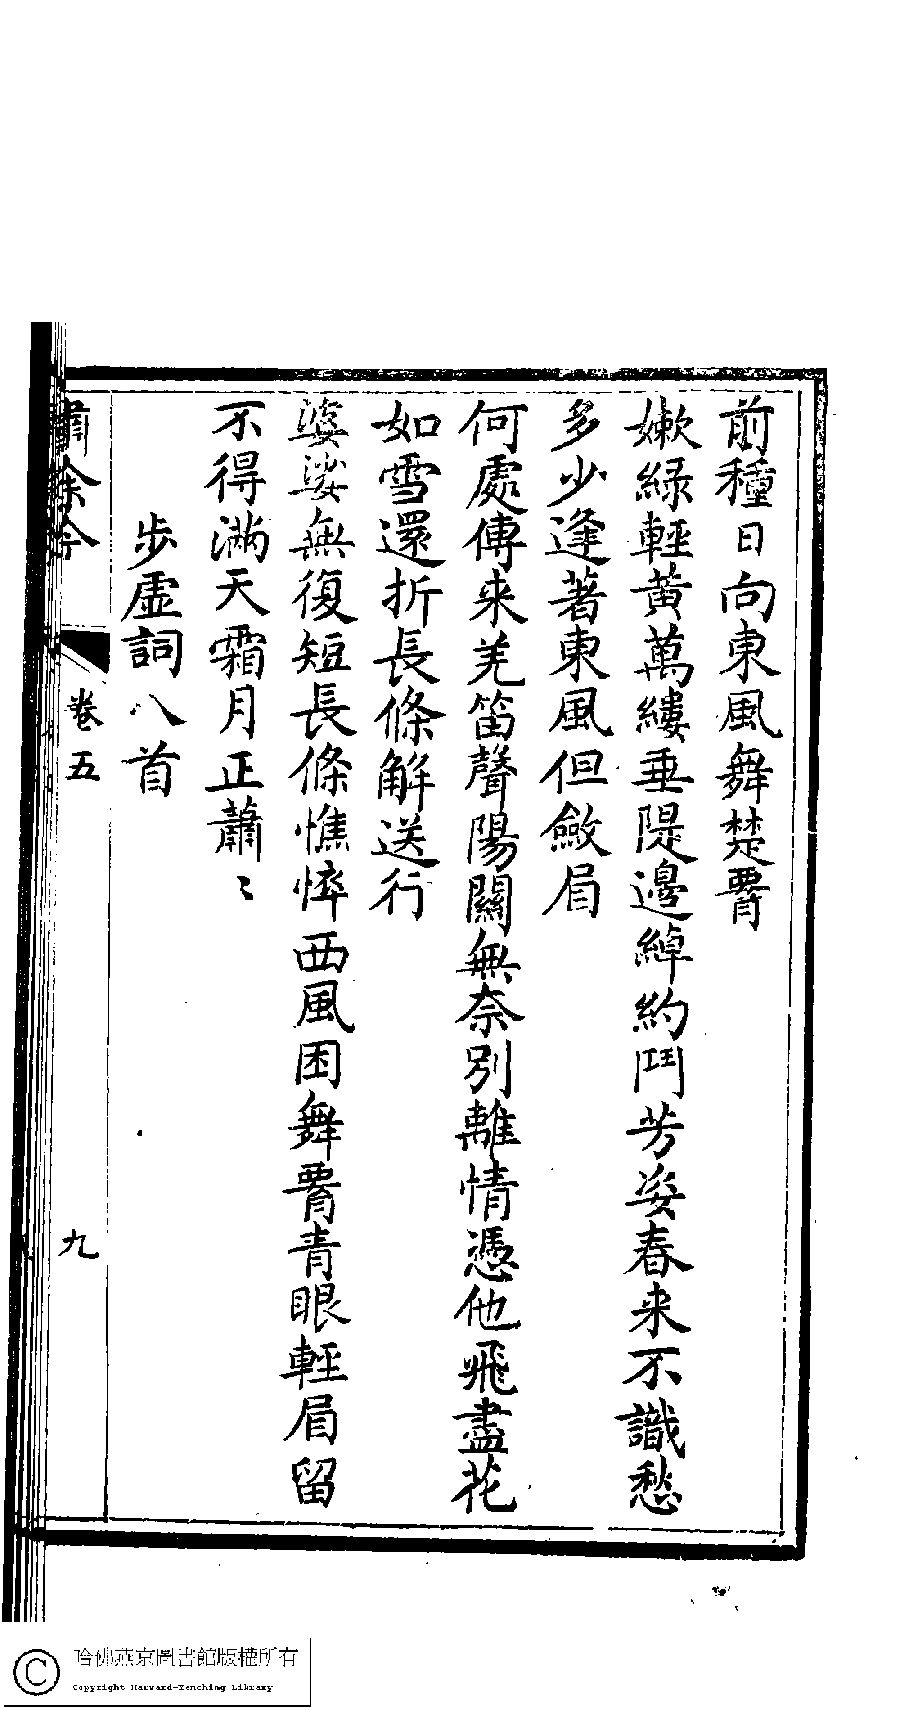 前種日向東風舞楚腰
嫩綠輕黃萬縷垂隄邊綽約鬥芳姿春来不識愁
多少逢著東風但斂眉
何處傳来羌笛聲陽關無奈別離情憑他飛盡花
如雪還折長條解送行
婆娑無復短長條憔悴西風困舞腰青眼輕眉留
不得滿天霜月正蕭〻
步虛詞八首
卷五
九
哈佛燕京圖書館版權所有
Copyright Harvard-Yenching Library